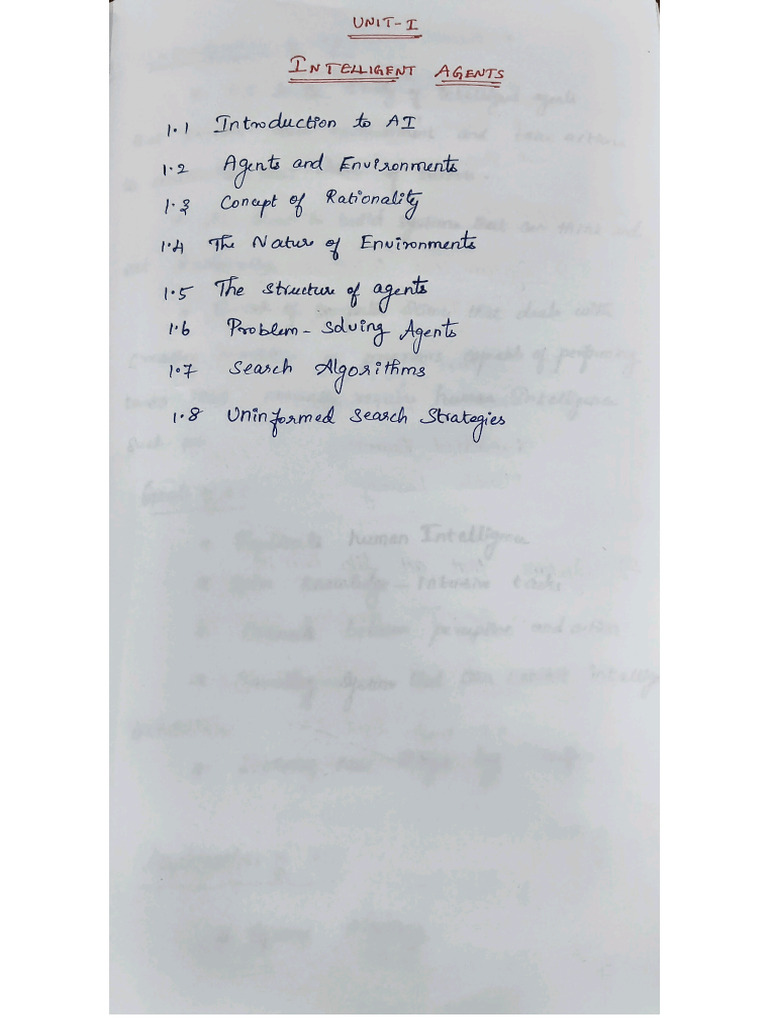 UNIT-I
INTELLIGENT AGENTS
1.1 Introduction to AI
1.2 Agents and Environments
1.3 Concept of Rationality
1.4 The Nature of Environments
1.5 The structure of agents
1.6 Problem-solving Agents
1.7 Search Algorithms
1.8 Uninformed Search Strategies